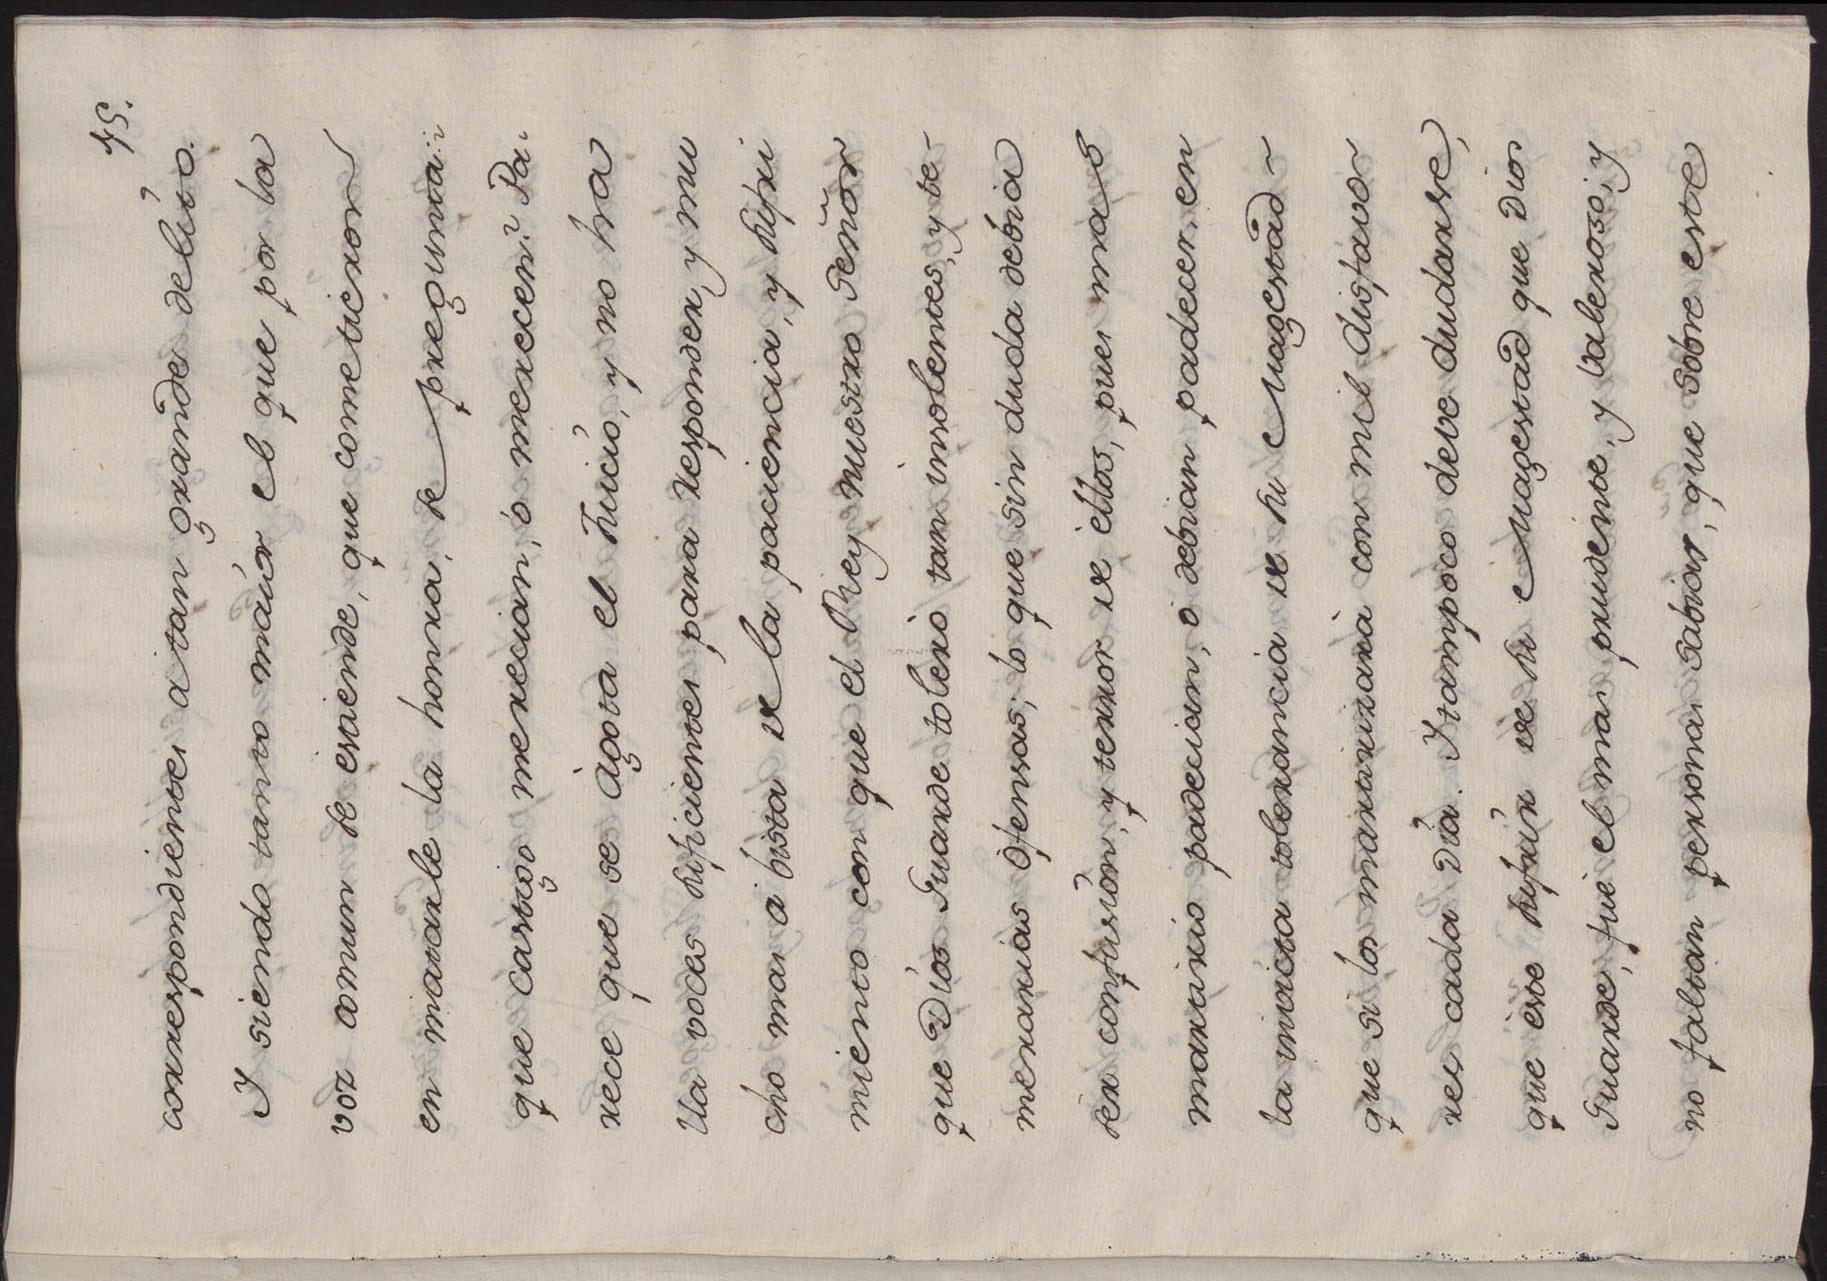 45.
correspondientes a tan grande delito.
I siendo tanto maior el que por la
voz comun se estiende, que cometieron
en matarle la honra, se pregunta:
que castigo merecian, ò merecen? Pa-
rece que se àgota el Juicio, y no ha
lla voces suficientes para responder, y mu
cho mas a bista de la paciencia, y sufri
miento con que el Rey nuestro Señor
que Dios Guarde tolerò tan insolentes, y te-
merarias ôfensas, lo que sin duda debia
ser confusion, y terror de ellos, pues mas
martirio padecian, ò debian padecer, en
la invicta tolerancia de su Magestad
que si los martirizara con mil disfavo
res cada dia. I tampoco deve dudarse,
que este sufrir de su Magestad que Dios
Guarde, fue el mas prudente, y baleroso, y
no faltan personas sabias, que sobre este